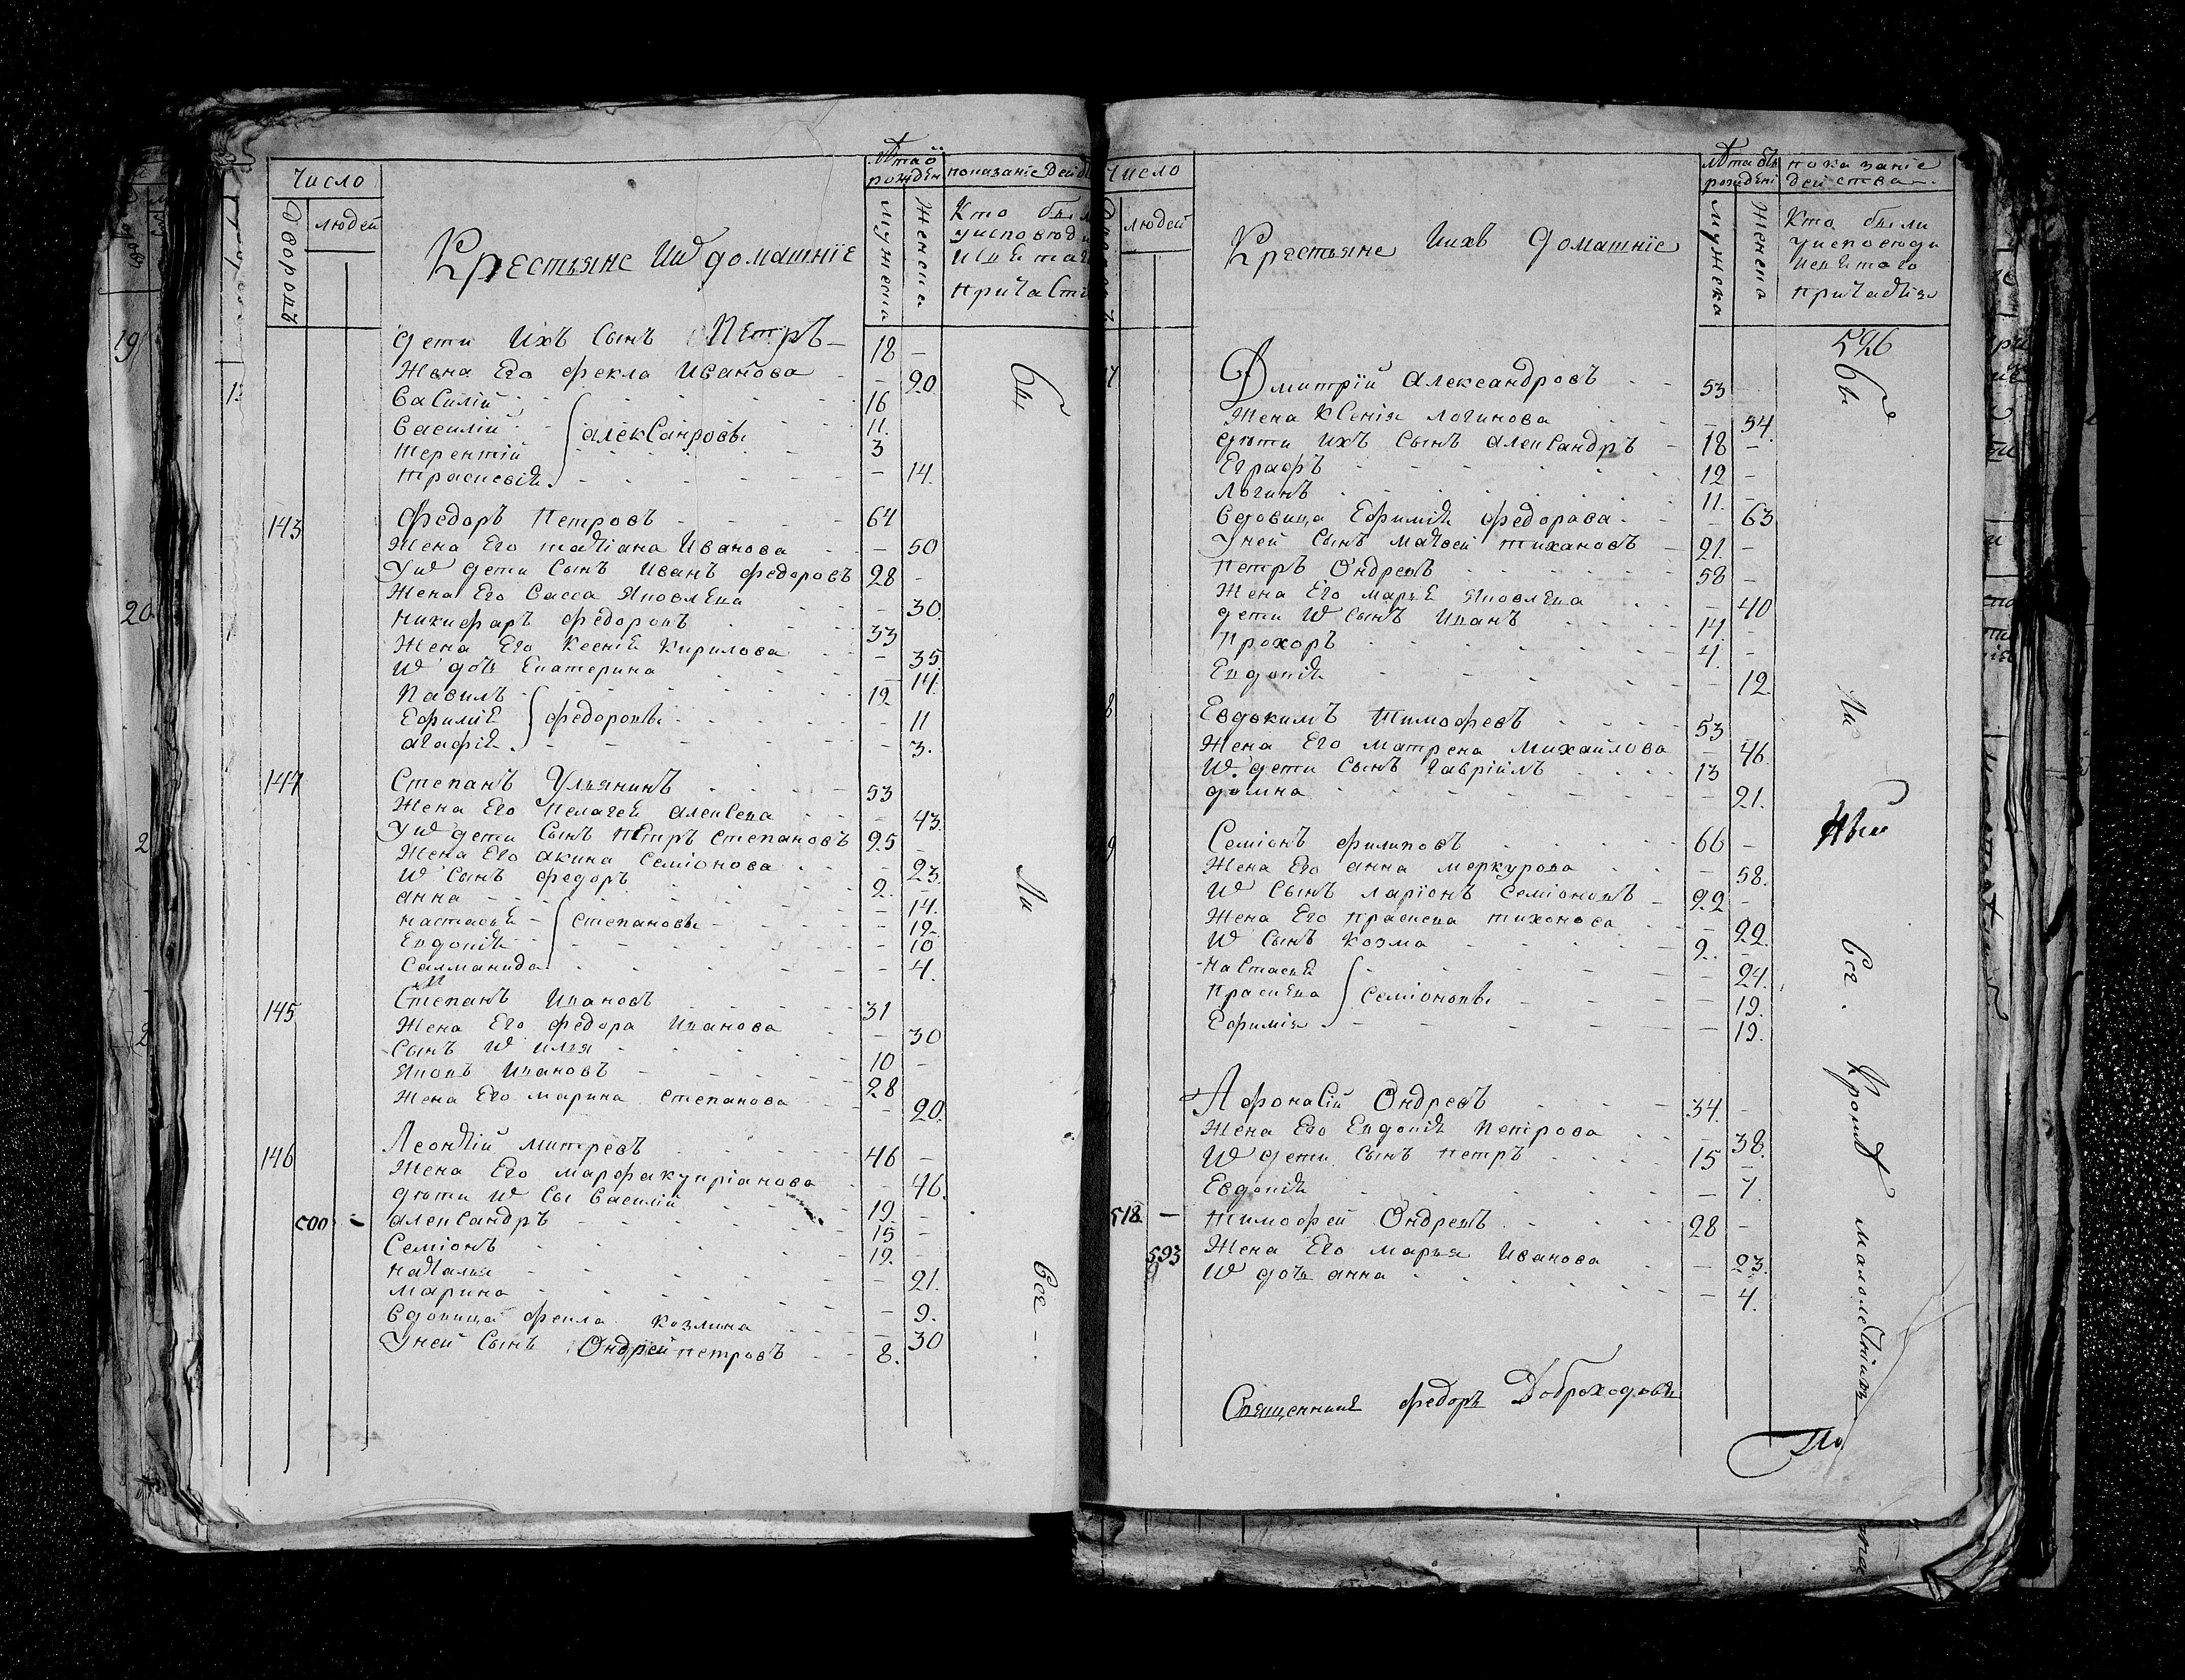 Число
Дворовъ
людей
Крестьяне Ихъ домашніе
Мужеска
Женска
показаніе
Кто были
дети Ихъ Сынъ Петръ 18 -
Жена Его Фекла Иванова - 20
Василій 16
Василій 11.
Терентій 3
Александровы
- 14.
143 Федоръ Петровъ 64
Жена Его татіана Иванова - 50
У дети Сынъ Иванъ Федоровъ 28 -
Жена Его Васса Яковлева - 30.
Никифаръ Федоровъ 33
Жена Его Ксенія Кирилова - 35.
Екатерина - 14.
Павилъ 12
Ефимія - 11
Федоровы
Агафія - 3.
144 Степанъ Ульянинъ 53
Жена Его Пелагея Алексева - 43.
дети Сынъ Петръ Степановъ 25
Жена Его Акина Семіонова - 23.
Сынъ Федоръ 2.
Анна - 14.
Настасья - 12.
Степановы
Евдокія - 10
- 4.
145 Степанъ Ивановъ 31
Жена Его Федора Иванова - 30
Сынъ Илья 10 -
Яковъ Ивановъ 28
Жена Его Марина Степанова - 20.
146 Леонтій Митревъ 46 -
Жена Его Марфа Купріанова - 46.
дети Василій 19. -
500 Александръ 15 -
Семіонъ 12. -
Наталья - 21.
Марина - 9.
вдовица Фекла Козмина - 30
Уней Сынъ Ондрей Петровъ 8.
Бы
Ли
Все
Число
людей
Крестьяне Ихъ Домашніе
Мужеска
Женска
показаніе
действа
Кто были
Уисповеди
Исвятаго
Причастія
526
Дмитрїй Александровъ 53
Жена Ксенія Логинова - 54.
дети Ихъ Сынъ Александръ 18 -
Еграфъ 12 -
Логинъ 11. -
вдовица Ефимія Федорова - 63
Уней Сынъ Матвей Тихановъ 21. -
Петръ Ондревъ 58 -
Жена Его Марья Яковлева - 40
дети Сынъ Иванъ 14. -
Прохоръ 4. -
Евдокія - 12.
8 Евдокимъ Тимофевъ 53
Жена Его Матрена Михайлова - 46.
дети Сынъ Гавріилъ 13
домна - 21.
9 Семіонъ Филиповъ 66 -
Жена Его Анна Меркурова - 58.
Сынъ Ларіонъ Семіоновъ 22 -
Жена Его Праскева Тихонова - 22.
Сынъ Козма 2. -
Настасья - 24.
Праскева - 19.
Семіоновы
Ефимія - 12.
Афонасій Ондревъ 34. -
Жена Его Евдокія Петрова - 38.
дети Сынъ Петръ 15 -
Евдокія - 7.
518 - Тимофей Ондревъ 28 -
593 Жена Его Марья Иванова - 23.
дочь Анна - 4.
Бы
Ли
Все
Кроме
малолетнихъ
Священникъ Федоръ Доброходовъ
По